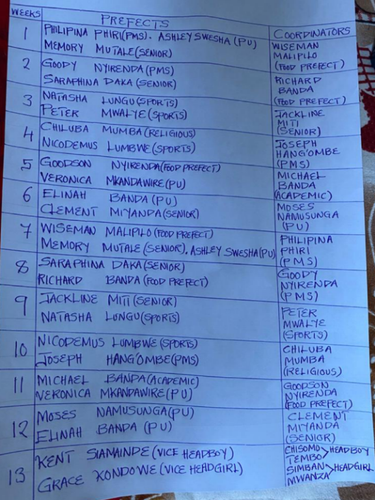 WEEKS PREFECTS COORDINATORS
1 PHILIPINA PHIRI(PMS). ASHLEY SWESHA (PU) WISEMAN
MEMORY MUTALE(SENIOR) MALIPILO
(FOOD PREFECT)
2 GOODY NYIRENDA (PMS) RICHARD
SARAPHINA DAKA (SENIOR) BANDA
(FOOD PREFECT)
3 NATASHA LUNGU (SPORTS) JACKLINE
PETER MWALYE (SPORTS) MITI
(SENIOR)
4 CHILUBA MUMBA (RELIGIOUS) JOSEPH
NICODEMUS LUMBWE (SPORTS) HANG'OMBE
(PMS)
5 GOODSON NYIRENDA (FOOD PREFECT) MICHAEL
VERONICA MKANDAWIRE (PU) BANDA
(ACADEMIC)
6 ELINAH BANDA (PU) MOSES
CLEMENT MIYANDA (SENIOR) NAMUSUNGA
(PU)
7 WISEMAN MALIPILO (FOOD PREFECT) PHILIPINA
MEMORY MUTALE (SENIOR). ASHLEY SWESHA (PU) PHIRI
(PMS)
8 SARAPHINA DAKA (SENIOR) GOODY
RICHARD BANDA (FOOD PREFECT) NYIRENDA
(PMS)
9 JACKLINE MITI (SENIOR) PETER
NATASHA LUNGU (SPORTS) MWALYE
(SPORTS)
10 NICODEMUS LUMBWE (SPORTS) CHILUBA
JOSEPH HANG'OMBE (PMS) MUMBA
(RELIGIOUS)
11 MICHAEL BANDA (ACADEMIC) GOODSON
VERONICA MKANDAWIRE (PU) NYIRENDA
(FOOD PREFECT)
12 MOSES NAMUSUNGA (PU) CLEMENT
ELINAH BANDA (PU) MIYANDA
(SENIOR)
13 KENT SIANAINDE (VICE HEADBOY) CHISOMO
TEMBO HEADBOY
GRACE KONDOWE (VICE HEADGIRL) SIMIBAN HEADGIRL
MWANZA